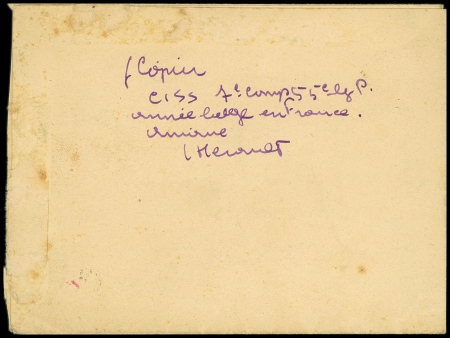 f Copier
CISS 7e Comp 55e lg P.
année belge en France.
Aniane
(Herault